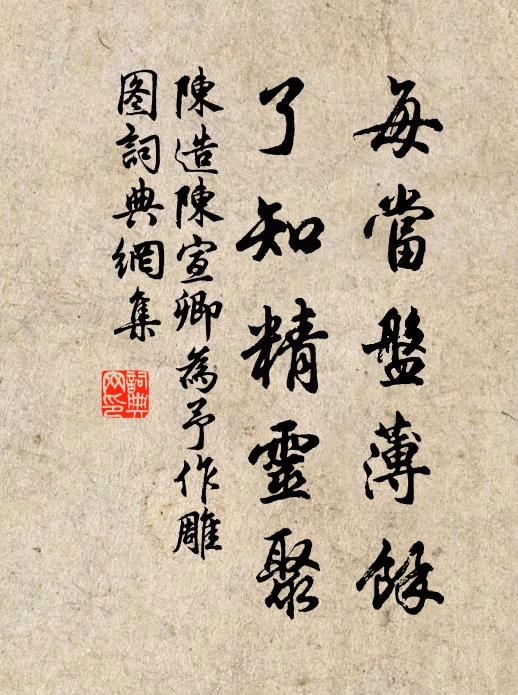 每當盤薄餘
了知精靈聚
陳造陳宣卿為予作雕
圖詞典網集
詞典
網印